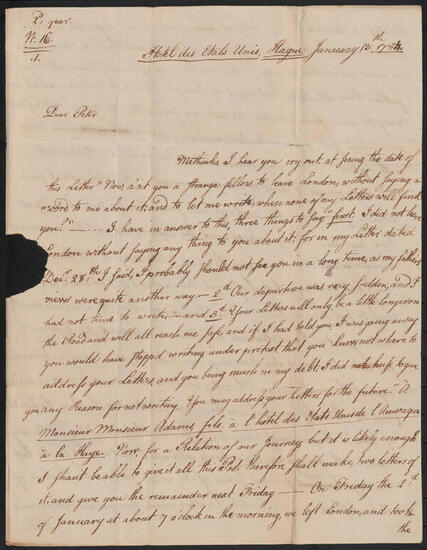 2d year.
N. 16.
.1.
Hotel des Etats Unis, Hague January 13th 1784.
Dear Peter
Methinks, I hear you cry out, at seeing the date of
this Letter "Now, a'nt you a strange fellow to leave London, without saying a
"word to me about it, and to let me write, when none of my Letters will find
you." — I have in answer to this, three things to say first. I did not leave
London without saying any thing to you about it: for in my Letter dated
Decr. 28th. I said, I probably should not see you in a long time, as my father's
views were quite another way — 2d. Our departure was very sudden, and I
had not time to write — and 3d. Your Letters will only be a little longer on
the Road and will all reach me safe, and if I had told you I was going away
you would have stopp'd writing under pretext that you knew not where to
address your Letters, and you being much in my debt, I did not chuse to give
you any Reason for not writing. You may address your Letters for the future "A
Monsieur Monsieur Adams fils. a l'hotel des Etats Unis de l'Amerique
à la Haye. Now for a Relation of our Journey but it is likely enough
I shant be able to give it all this Post therefore shall make, two letters of
it, and give you the remainder next Friday — On Friday the 2.d
of January at about 7 o'clock in the morning, we left London, and took
the